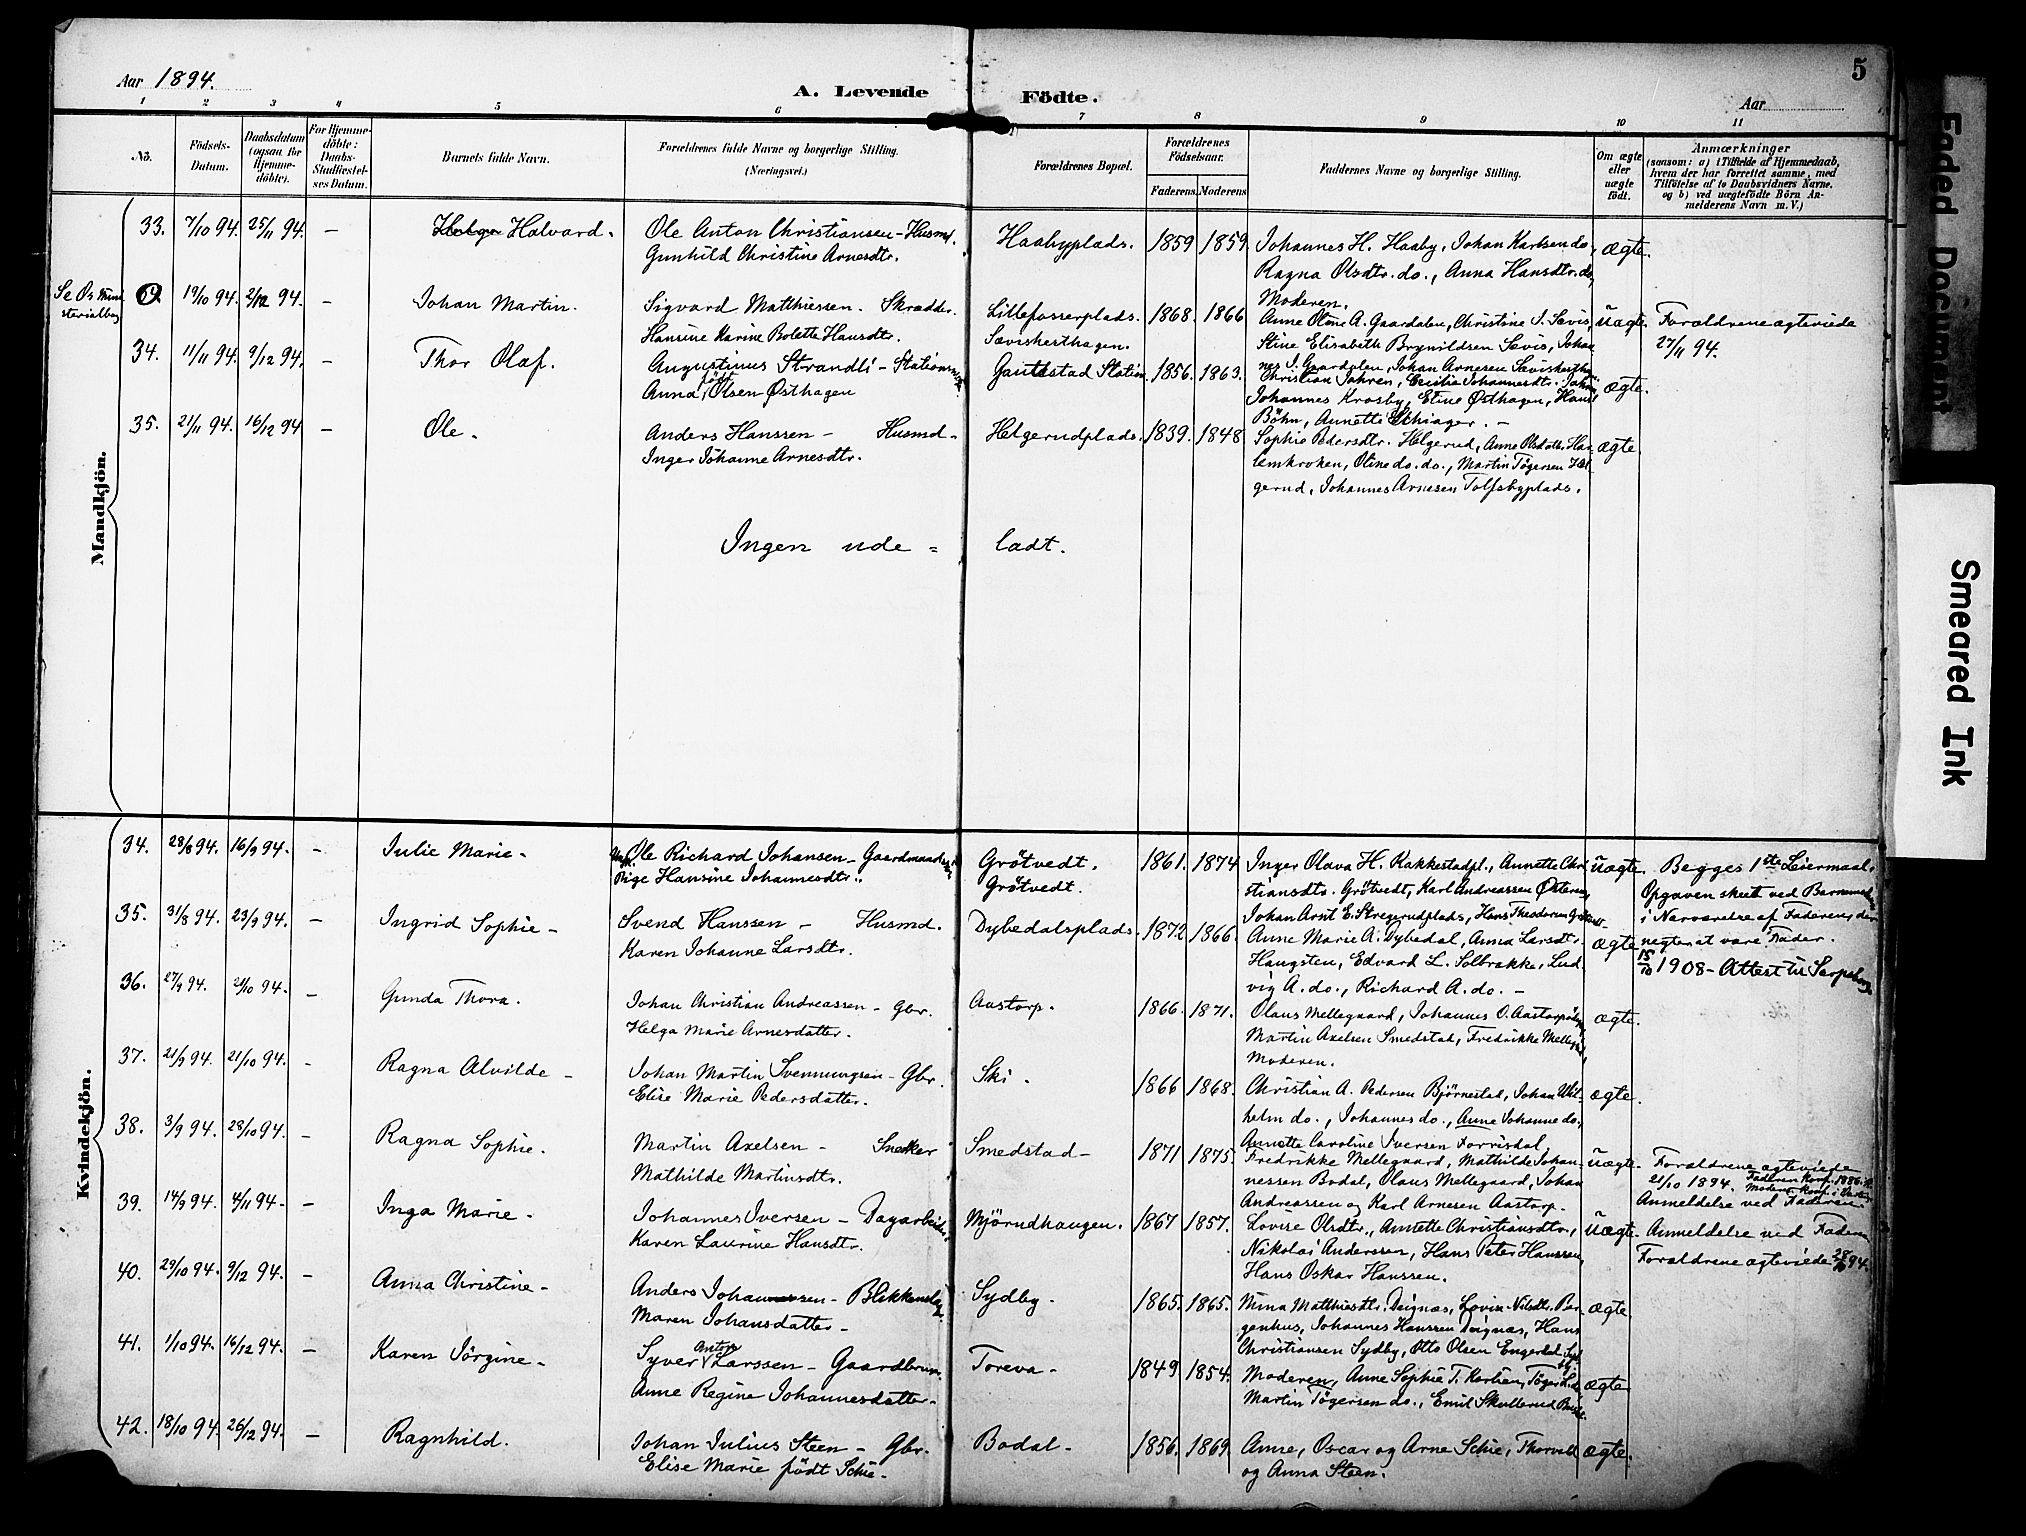 Aar 1894.
A. Levende Födte.
Aar
5
1 2 3 4 5 6 7 8 9 10 11
No. Födsels-Datum. Daabsdatum (ogsaa for Hjemme-döbte). For Hjemme-döbte: Daabs-Stadfæstel-ses Datum. Barnets fulde Navn. Forældrenes fulde Navne og borgerlige Stilling. (Næringsvei.) Forældrenes Bopæl. Forældrenes Födselsaar. Faderens. Moderens. Faddernes Navne og borgerlige Stilling. Om ægte eller uægte födt.
Anmærkninger
(saasom: a) i Tilfælde af Hjemmedaab,
hvem der har forrettet samme, med
Tilföielse af to Daabsvidners Navne,
og b) ved uægtefödte Börn An-
melderens Navn m. V.)
Mandkjön.
33. 7/10 94. 25/11 94. – Halvard. Ole Anton Christiansen – Husmd. Haabyplads. 1859 1859. Johannes H. Haaby, Johan Karlsen do, ægte.
Gunhild Christine Arnesdtr. Ragna Olsdtr. do., Anna Hansdtr. do,
Moderen.
Se Os Mini
sterialbog 19/10 94. 2/12 94. – Johan Martin. Sigvard Matthiessen. Skrædder. Lillefosserplads. 1868. 1866 Anne Oline A. Gaardalen, Christine J. Sævis, uægte. Forældrene ægteviede
Hansine Karine Bolette Hansdtr. Sævishesthagen. Stine Elisabeth Brynildsen Sævis, Johan 27/11 94.
nes J. Gaardalen, Johan Arnesen
34. 11/11 94. 9/12 94. – Thor Olaf. Augustinus Strandli – Gautestad Station 1856. 1863. Christian Johren, Cecilia Johannesdtr. ægte.
Anna født Olsen Østhagen Johannes Krosby, Eline Østhagen, Hans
Böhn, Annette –
35. 21/11 94. 16/12 94 – Ole. Anders Hanssen – Husmd. Helgerudplads. 1839. 1848 Sophie Pedersdtr. Helgerud, Anne Olsdatter Har ægte.
Inger Johanne Arnesdtr. lemkroken, Oline do. do., Martin Tögersen Hel
gerud, Johannes Arnesen Tolfsbyplads.
Ingen ude = ladt.
Kvindekjön.
34. 28/8 94. 16/9 94. – Julie Marie. Ole Richard Johansen – Grötvedt. 1861. 1874 Inger Olava H. Kakkestadpl., Annette Chri uægte. Begges 1ste Leiermaal.
Pige Hansine Johannesdtr. Grötvedt. stiansdtr. Grötvedt, Karl Andreassen Opgaven skeet ved Barnemod.
Johan Arnt E. Stregerudplads, Hans Theodorsen i Nærværelse af Faderen, der
negter at være Fader.
15/10 1908 – Attest til Sarpsborg
35. 31/8 94. 23/9 94. – Ingrid Sophie – Svend Hanssen – Husmd. Dybedalsplads. 1872 1866. Anne Marie A. Dybedal, Anna Larsdtr. ægte
Karen Johanne Larsdtr. Haugsten, Edvard L. Solbrække, Lud
vig A. do., Richard A. do. –
36. 27/9 94. 21/10 94. – Gunda Thora. Johan Christian Andreassen – Gbr. Aastorp. 1866. 1871. Olaus Mellegaard, Johannes O. ægte.
Helga Marie Arnesdatter. Martin Axelsen Smedstad, Fredrikke
Moderen.
37. 21/9 94. 21/10 94. – Ragna Alvilde – Johan Martin Svenningsen – Gbr. Ski. 1866 1868. Christian A. Pedersen Bjørnestad, Johan Wil- ægte.
Elise Marie Pedersdatter. helm do., Johannes do., Anne Johanne do.,
Annette Caroline Iversen Forrisdal
38. 3/9 94. 28/10 94. – Ragna Sophie. Martin Axelsen – Snekker Smedstad – 1871 1875. Fredrikke Mellegaard, Mathilde Johan- uægte. Forældrene ægteviede
Mathilde Martinsdtr. nessen Bodal, Olaus Mellegaard, Johan 21/10 1894.
Andreassen og Karl Arnesen Aastorp. Anmeldelse ved Faderen
39. 14/9 94. 4/11 94. – Inga Marie. Johannes Iversen – Dagarbeider. Mjörudhaugen. 1867 1857. Lovise Olsdtr., Annette Christiansdtr., uægte. Anmeldelse ved Faderen
Karen Laurine Hansdtr. Nikolai Anderssen, Hans Peter Hanssen, Forældrene ægteviede 94.
Hans Oskar Hanssen.
40. 29/10 94. 9/12 94. – Anna Christine – Anders – Blikkenslag. Sydby. 1865. 1865. Nina Matthisdtr. Deignæs, Lovise Nilsdtr. Bor ægte.
Maren Johansdatter – genhus, Johannes Hanssen Deignæs, Hans
Christiansen Sydby, Otto Olsen
41. 1/10 94. 16/12 94. – Karen Jörgine – Syver Anton Larssen – Gaardbrug. Toreva – 1849 1854. Moderen, Anne Sophie T. ægte.
Anne Regine Johannesdatter. Martin Tögersen do., Emil Skullerud
42. 18/10 94. 26/12 94. – Ragnhild. Johan Julius Steen – Gbr. Bodal – 1856. 1869. Anne, Oscar og Arne Schie, Thorvald ægte.
Elise Marie født Schie – og Anna Steen.
Faded Document
Smeared Ink